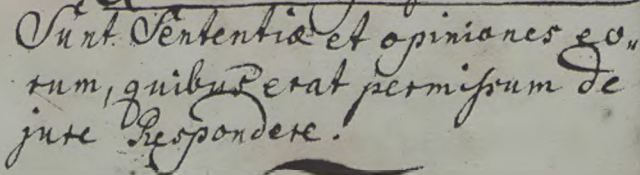 Sunt Sententiæ et opiniones eo„
rum, quibus erat permissum de
jure Respondere.